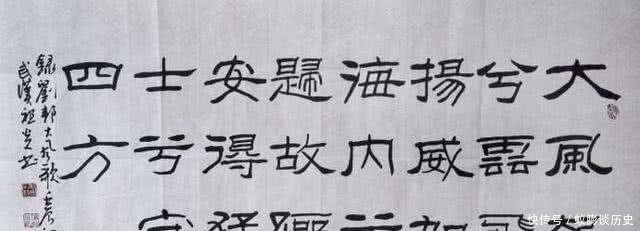 大風
兮雲飛
揚威加
海內兮
歸故鄉
安得猛
士兮守
四方
錄劉邦大風歌壬辰
武漢祖光书
快传号/蚁膨谈历史